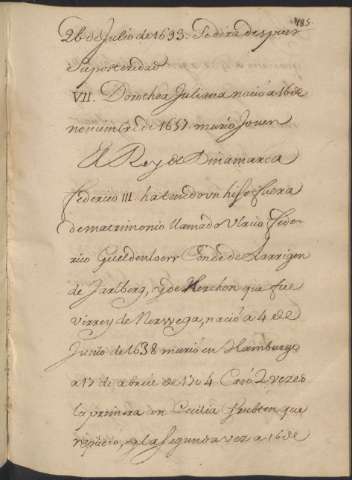 185.
26 de Julio de 1693. Se dira despues
su posteridad
VII. Dorothea Juliana nació a 16 de
noviembre de 1657. murio Joven
El Rey de Dinamarca
Federico III. ha tenido un hijo fuera
de matrimonio llamado Ulrico Fede-
rico Gueldenleew Conde de Larvigen
de Jarlberg, y de Herchon que fue
virrey de Norwega, nació a 4 de
Junio de 1638 murió en Hamburgo
a 17 de abril de 1704. Casó 2 vezes
la primera con Cecilia Grubten que
repudió, y la segunda vez a 16 de